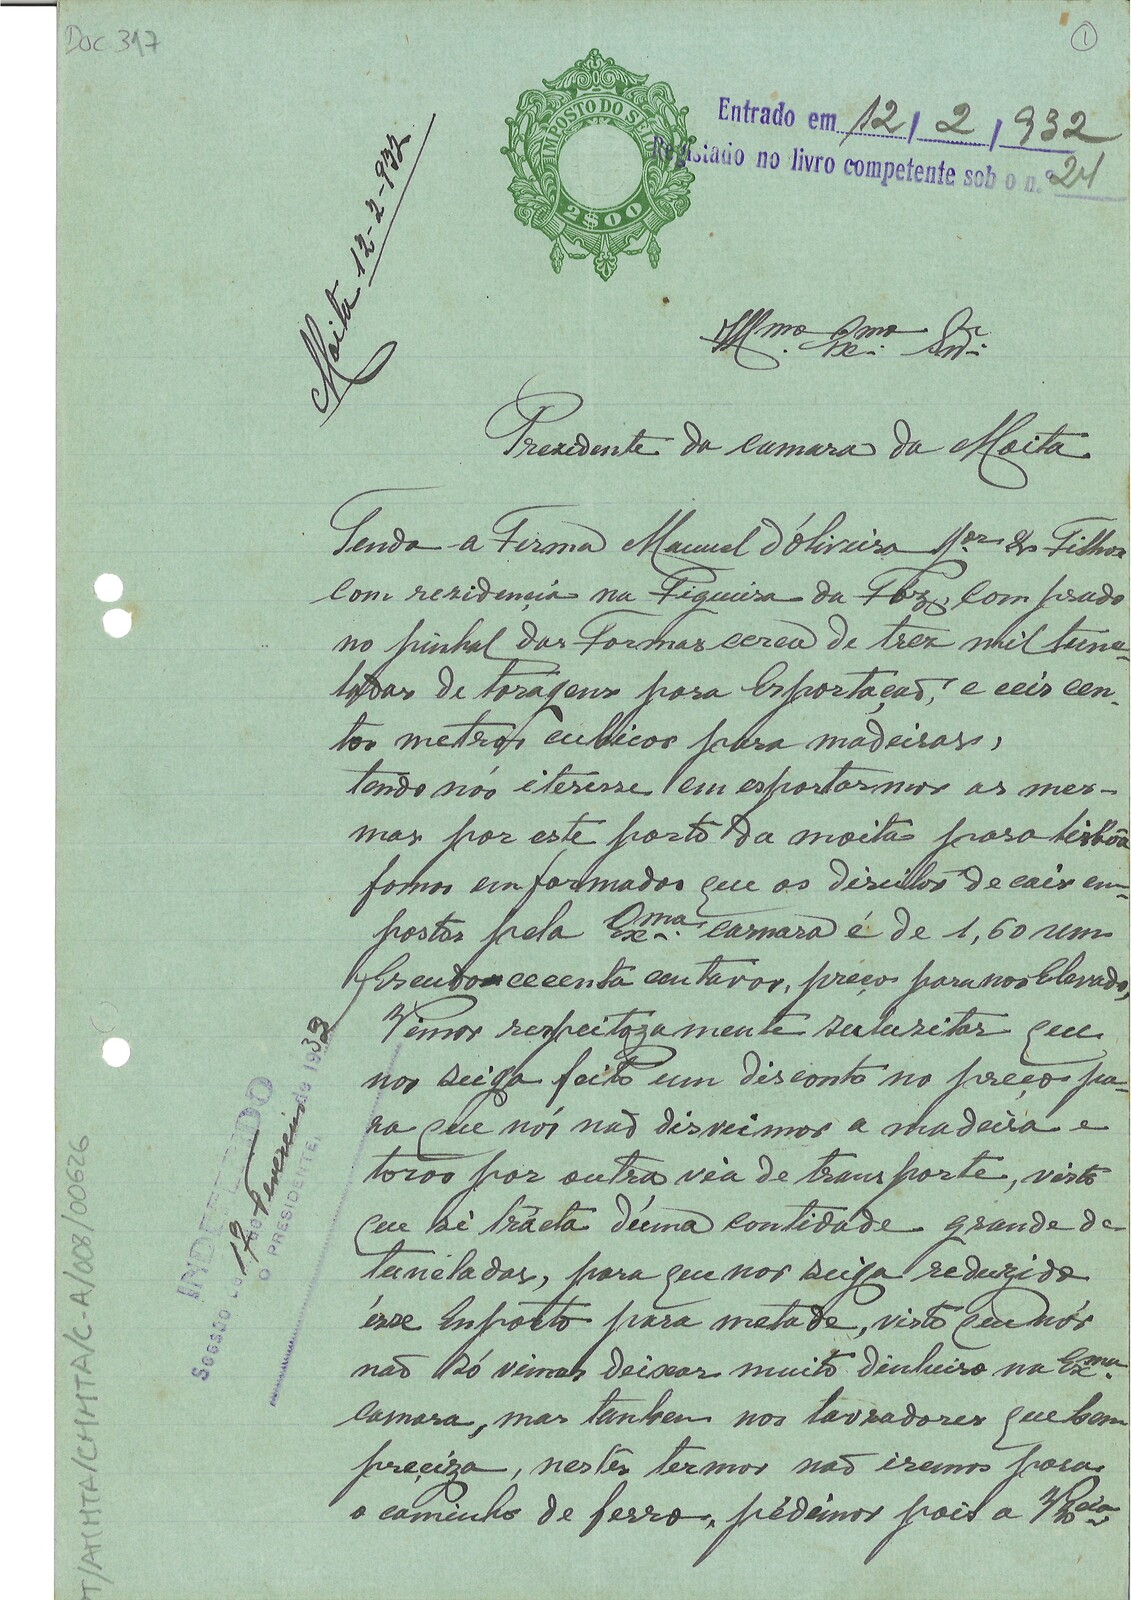 Doc 317
1
IMPOSTO DO SE
2$00
Entrado em 12/2/932
Registado no livro competente sob o n.º 24
Moita 12-2-932
Illmo. Exmo. Snr.
Prezidente da camara da Moita
Tendo a Firma Manuel d'Óliveira Jor & Filhos
com rezidençia na Figueira da Fóz, comprado
no pinhal das Formas cerca de trez mil tune-
ladas de toragens para Esportaçaõ, e ceis cen-
tos metros cubicos para madeiras,
tendo nós iteresse em esportarmos as mes-
mas por este porto da moita para lisbôa
fomos emformados que os direitos de cais em-
postos pela Exma. camara é de 1,60 um
Escudo e cecenta centavos, preço para nos Elevado,
Vimos respeitozamente sulusitar que
nos seija feito um disconto no preço pa-
ra que nós naõ disveimos a madeira e
toros por outra via de transporte, visto
que si trácta d'uma contidade grande de
tuneladas, para que nos seija reduzido
ésse Emposto para metade, visto que nós
naõ só vimos deixar muito dinheiro na Exma.
camara, mas tanbem nos lavradores que bem
preçiza, nestes termos naõ iremos para
o caminho de ferro, pédimos pois a V Excia
INDEFERIDO
Sessão de 17 de Fevereiro de 1932
O PRESIDENTE,
PT/AMMTA/CMMTA/C-A/008/00626